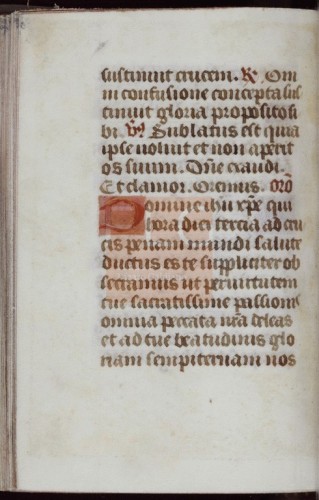 sustinuit crucem. R. Om
ni confusione concepta sus
tinuit gloria proposito si
bi. V. Sublatus est quia
ipse uoluit et non aperit
os suum. Dñe exaudi.
Et clamor. Oremus. orõ
Domine ihu xpe qui
hora diei tercia ad cru
cis penam mundi salute
ductus es te suppliciter ob
secramus ut per uirtutem
tue sacratissime passionis
omnia peccata nrã deleas
et ad tue beatudinis glo
riam sempiternam nos